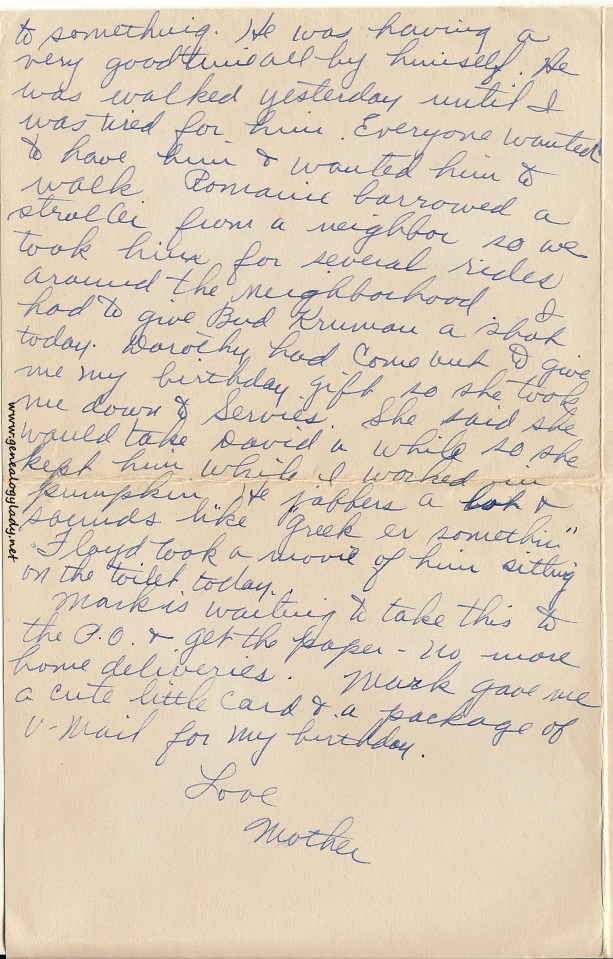 to something. He was having a
very good time all by himself. He
was walked yesterday until I
was tired for him. Everyone wanted
to have him & wanted him to
walk Romaine barrowed a
stroller from a neighbor so we
took him for several rides
around the neighborhood I
had to give Bud Kruman a shot
today. Dorothy had come out to give
me my birthday gift so she took
me down to Servies. She said she
would take David a while so she
kept him while I worked in
pumpkin. He jabbers a lot &
sounds like "greek er somethin"
Floyd took a movie of him sitting
on the toilet today.
Mark is waiting to take this to
the P.O. & get the paper - no more
home deliveries. Mark gave me
a cute little card & a package of
V-Mail for my birthday.
Love
Mother
www.genealogylady.net